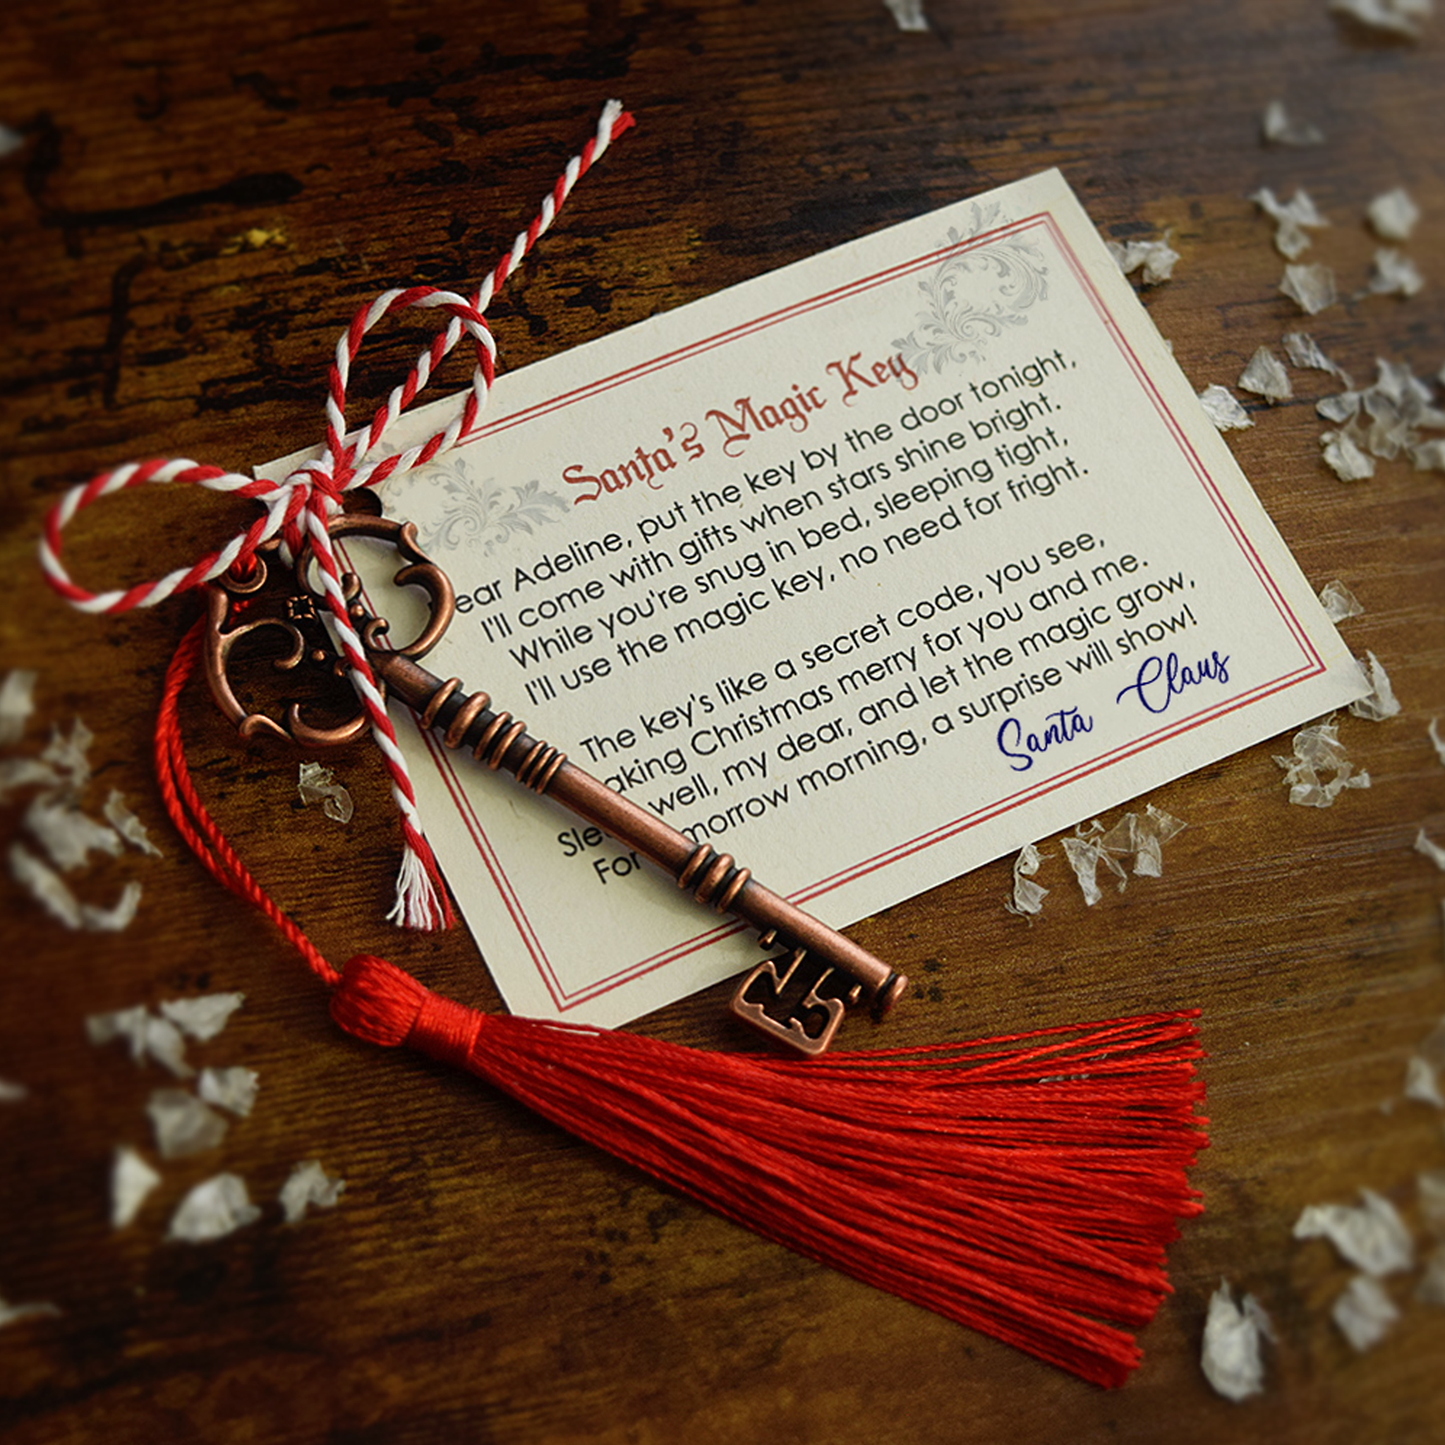 Santa's Magic Key
ear Adeline, put the key by the door tonight,
I'll come with gifts when stars shine bright.
While you're snug in bed, sleeping tight,
I'll use the magic key, no need for fright.
The key's like a secret code, you see,
aking Christmas merry for you and me.
Slee well, my dear, and let the magic grow,
For morrow morning, a surprise will show!
Santa Claus
25